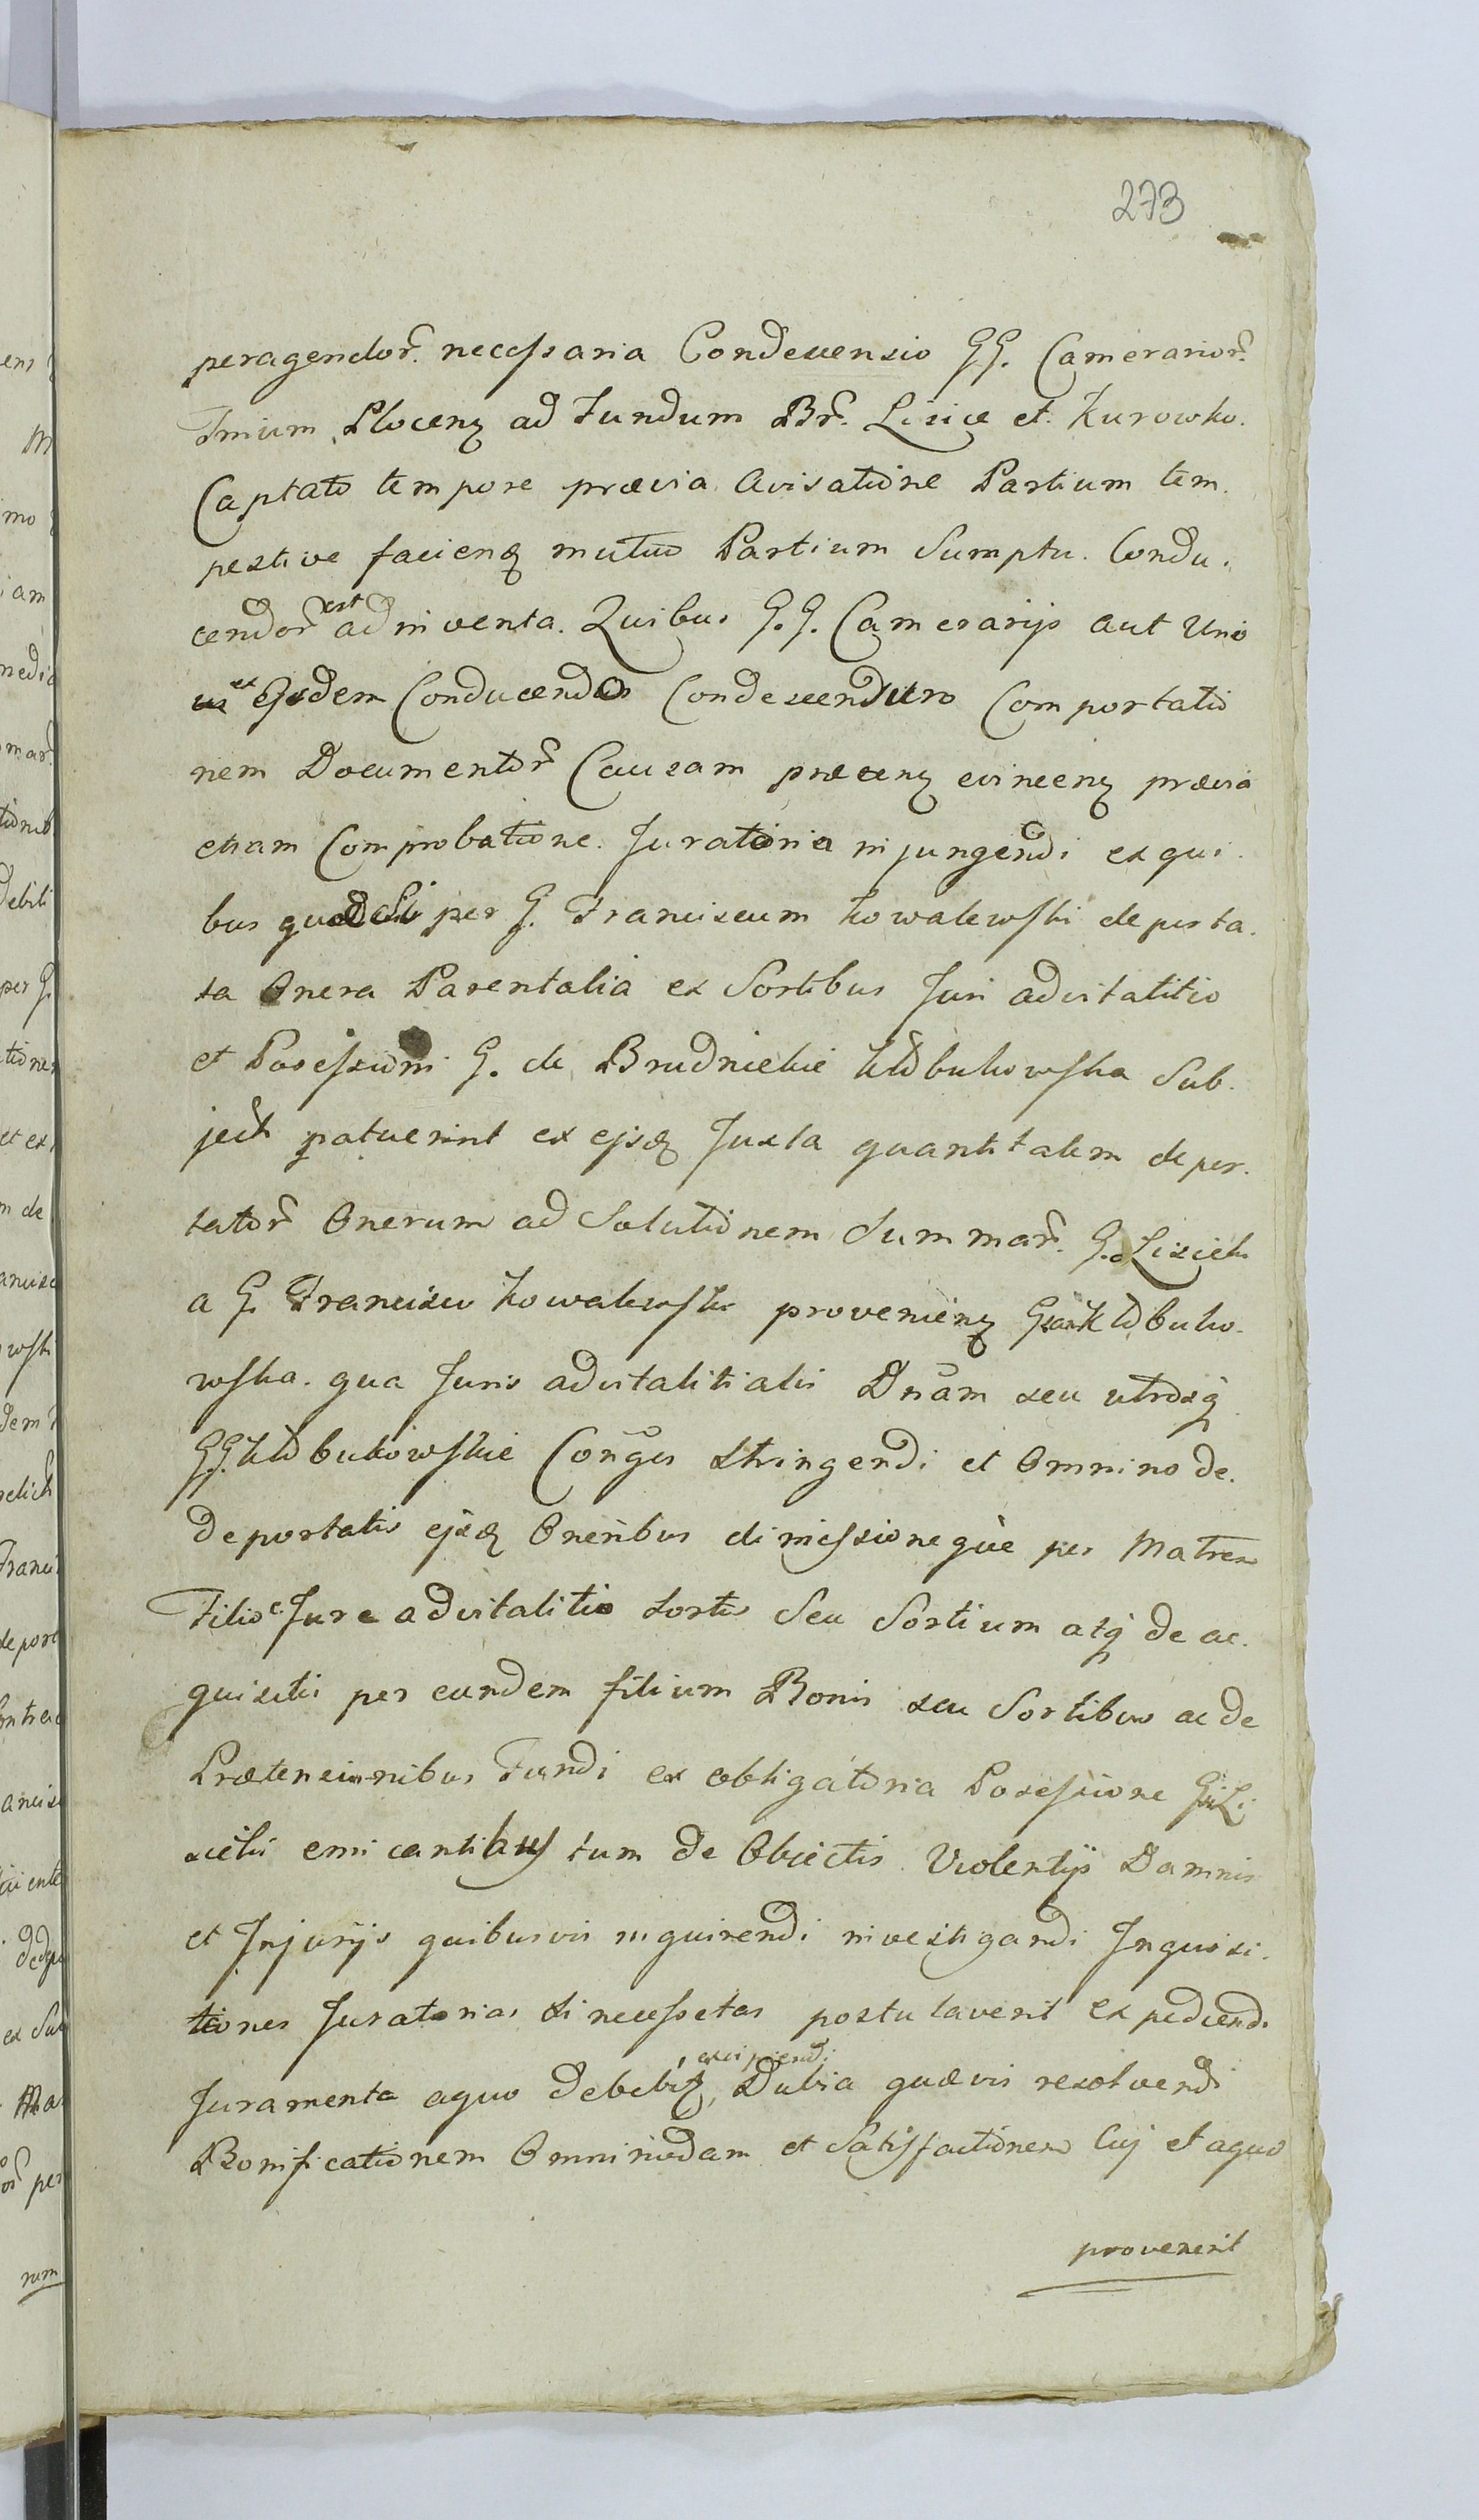 273
peragendor. necessaria Condescensio GG. Camerarior.
Trium Plocen ad Fundum Br. Lisice et Kurowko.
Captato tempore prævia avisatione Partium tem.
pestive facienq mutuo Partium Sumptu. Condu.
cendor est adinventa. Quibus G. G. Camerarijs aut Uni
et Ejsdem Conducendo Condescenduro Comportatio
nem Documentor Causam præcen evincen prævia
etiam Comprobatione. Juratoria injungendi ex qui.
bus per G. Franciscum Kowalewski deporta.
ta Onera Parentalia ex Sortibus Juri advitalitio
et Possessioni G. de Brudnickie Kłobukowska Sub.
ject patuerint ex ejsq Juxta quantitatem depor.
tator Onerum ad Solutionem Summar. G. Lisicki
a G. Francisco Kowalewski provenien Kłobuko.
wska. qua Juris advitalitialis Dnam seu utrosq
GG. Kłobukowskie Conges Stringendi et Omnino de.
deportatis ejsq Oneribus dimissioneque per Matrem
Filio Jure advitalitio Sortis Seu Sortium atq de ac.
quisitis per eundem filium Bonis seu Sortibus ac de
Prætensionibus Fundi ex obligatoria Possessione G. Li
sicki emicantibus tum de Objectis Violentijs Damnis
et Injurijs quibusvis inquirendi investigandi Inquisi.
tiones Juratorias si necessetas postulaverit expediendi
Juramenta aquo debebit, excipiendi Dubia quævis resolvendi
Bonificationem Omnimodam et Satisfactionem Cuj et aquo
provenerit